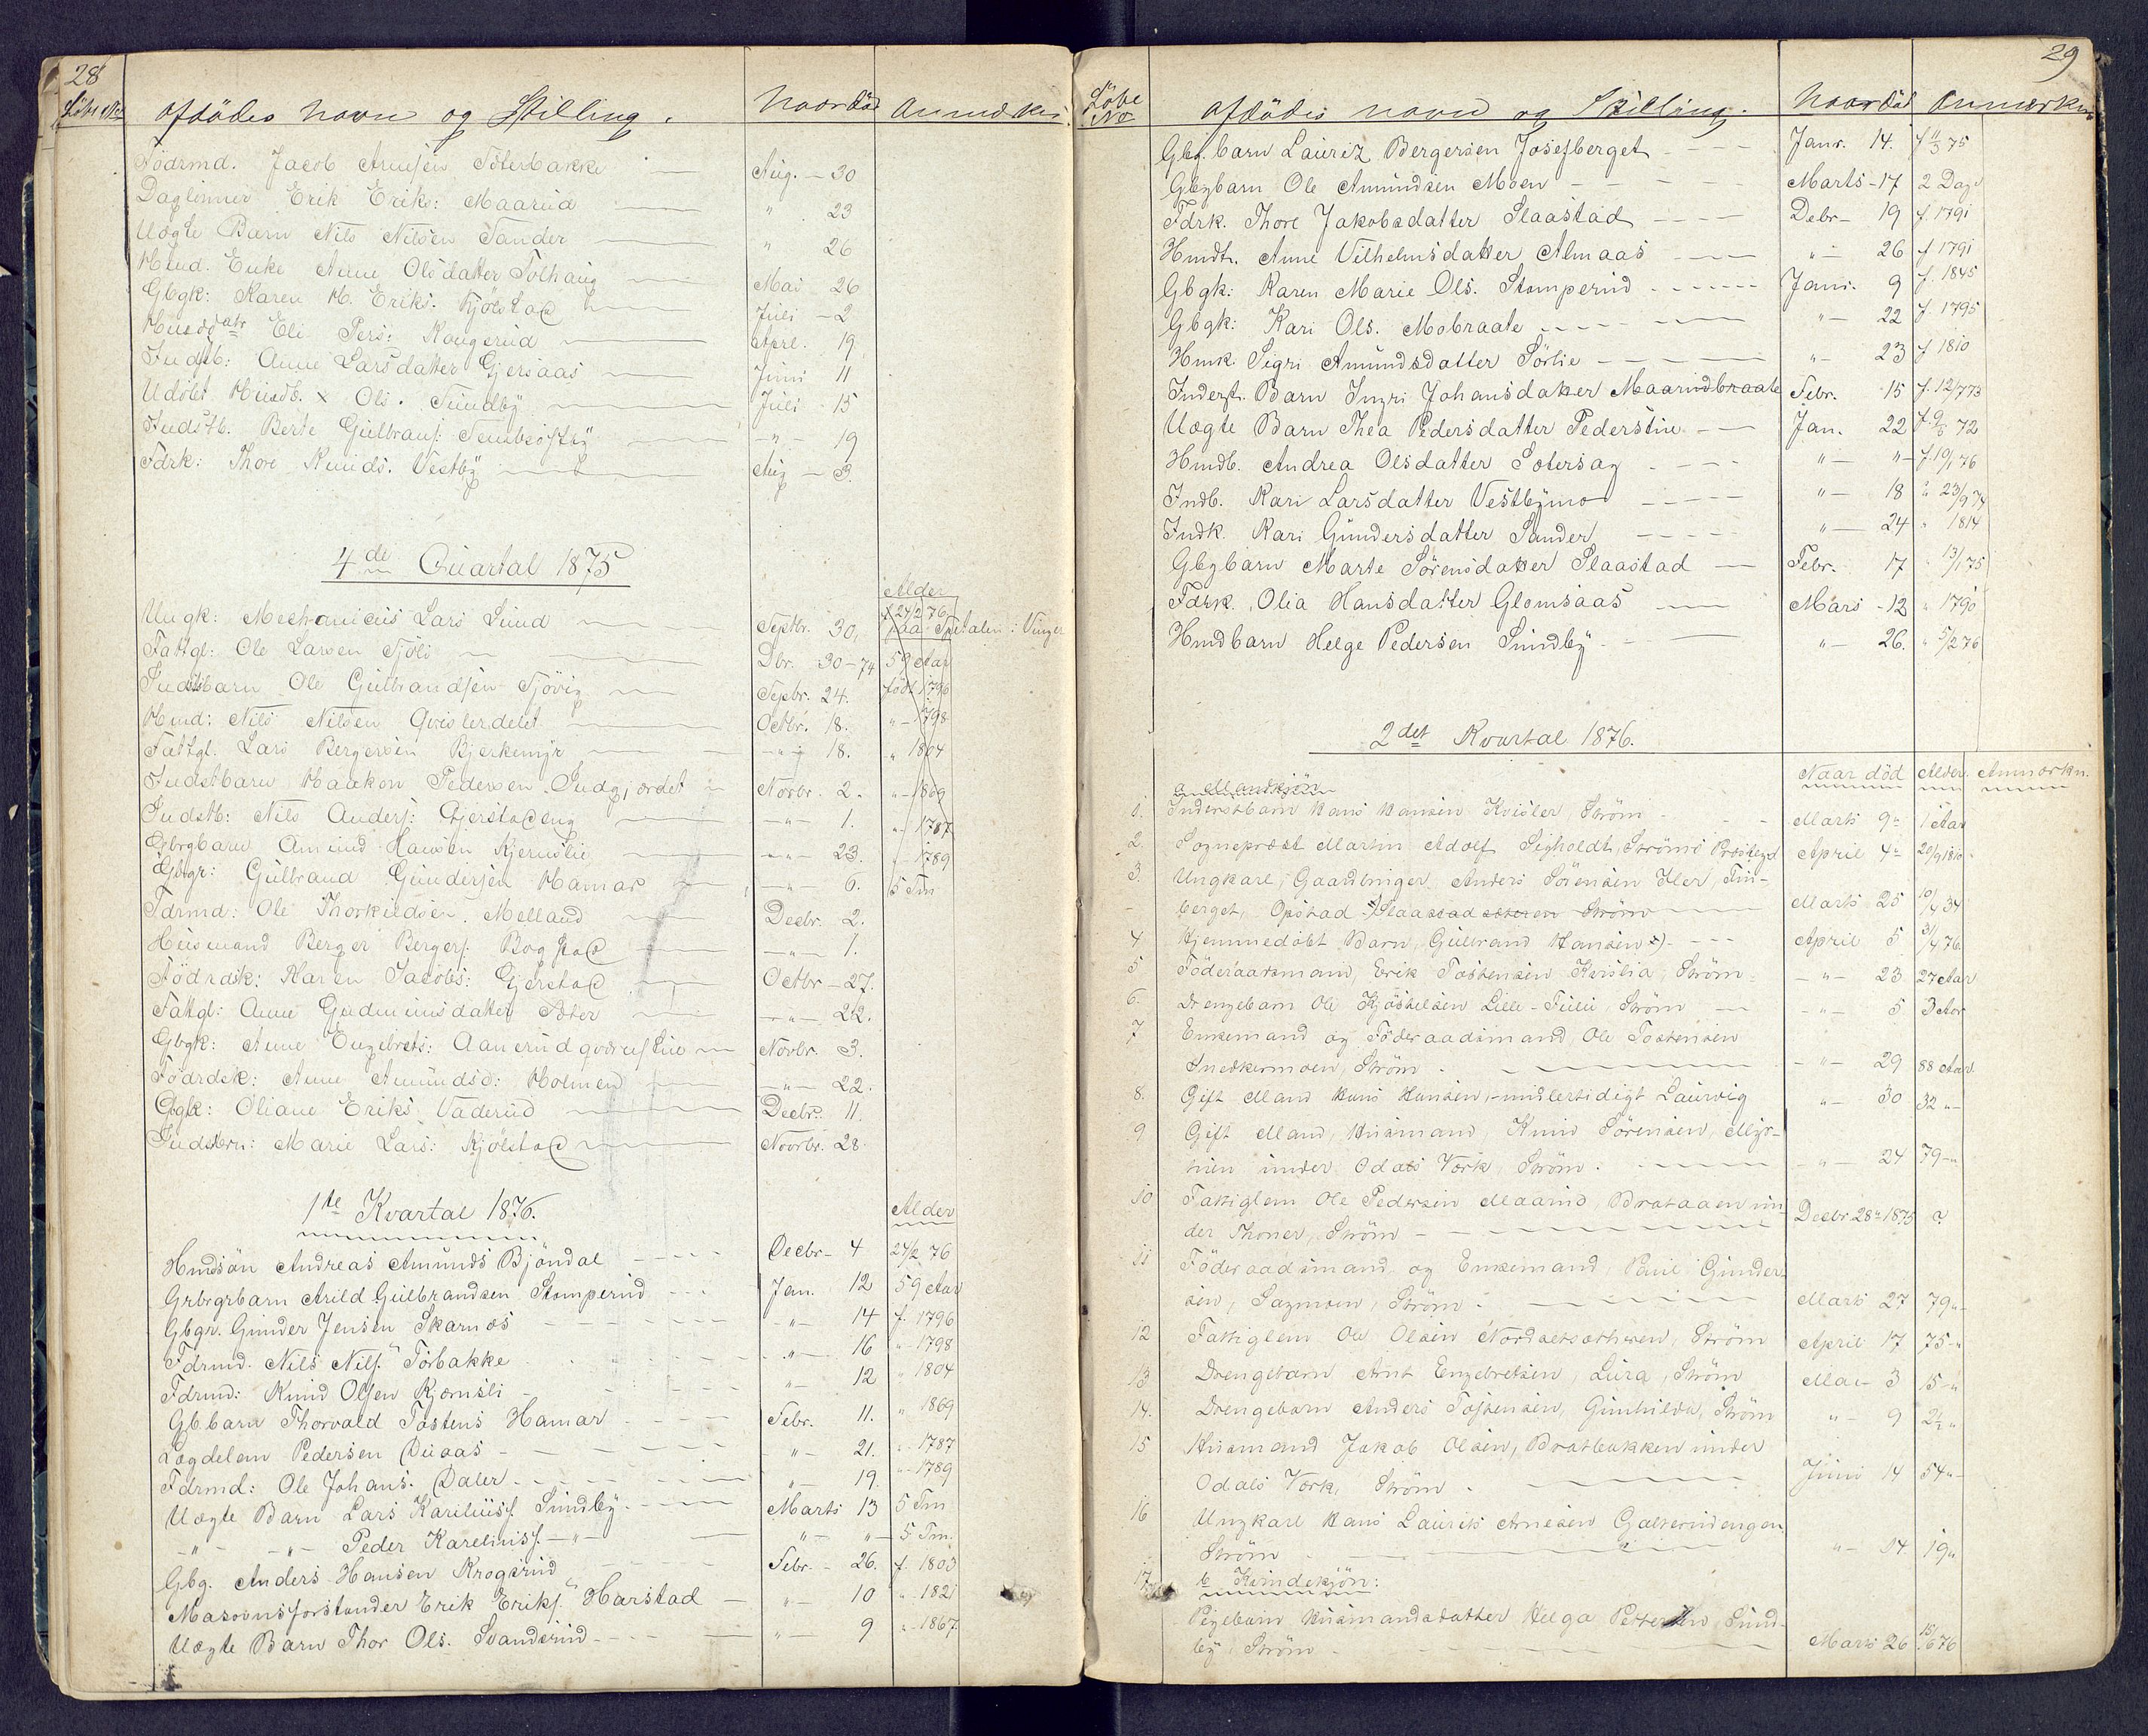 28
Löbe No afdödes navn og Stilling. Naar död Anmerkn
Födrmd. Jacob Arnesen Söterbakke Aug. 30
Daglönner Erik Eriks: Maarud " 23
Uægte Barn Nils Nilsen Sander " 26
Hmd. Enke Anne Olsdatter Tolhaug Mai 26
Gbgk: Karen M. Eriks. Kjölstad Juli 2
Husdatr Eli Pers: Rougerud Aprl. 19
Indstb: Anne Larsdatter Gjersaas Juni 11
Udöbt Husdb. x Ols. Sundby Juli 15
Indstb. Berte Gulbrans: " 19
Fdrk: Thore Knuds. Vestby Aug 3.
4de Quartal 1875
Alder
Ungk: Mechanicus Lars Lund Septbr. 30, f 24/2 76 paa Spitalen i Vinger
Fattgl: Ole Larsen Sjöli Dbr. 30-74 59 Aar
Indstbarn Ole Gulbrandsen Sjövig Sepbr. 24. födt 1796
Hmd: Nils Nilsen Qvislerdelet Octbr. 18. " 1798
Fattgl. Lars Bergersen Bjerkemyr " 18. " 1804
Indstbarn Haakon Pedersen Indgjordet Novbr. 2. " 1869
Indstb: Nils Anders: Gjerstadeng " 1. " 1787
Gbrgbarn Amund Hansen Kjernslie " 23. " 1789
Gbgr: Gulbrand Gundersen Hamar " 6. 5 Tm
Fdrmd: Ole Thorkildsen. Melland Decbr. 2.
Husmand Berger Bergers. Bogstad " 1.
Födrdsk: Karen Jacobs: Gjerstad Octbr 27.
Fattgl: Anne Gudmunsdatter Sæter " 22.
Gbgk: Anne Engebrets: Novbr. 3.
Födrdsk: Anne Amundsd: Holmen " 22.
Gbgk: Oliane Eriks Vaderud Decbr. 11.
Indstbrn: Marie Lars: Kjölstad Novbr. 28
1te Kvartal 1876.
Alder
Hmdsön Andreas Amunds Bjöndal Decbr 4 24/2 76
Grbrgrbarn Arild Gulbrandsen Stomperud Jan. 12 59 Aar
Gbgr. Gunder Jensen Skarnæs " 14 f. 1796
Fdrmd. Nils Nils. Torbakke " 16 " 1798
Fdrmd: Knud Olsen Kjernsli " 12 " 1804
Gb.barn Thorvald Tostens Hamar Febr. 11. " 1869
Lægdelem Pedersen Duaas " 21. " 1787
Fdrmd: Ole Johans. Daler " 19. " 1789
Uægte Barn Lars Kariliuss. Sundby Marts 13 5 Tm
" " Peder Kareliuss. " " " 5 Tm.
Gbg. Anders Hansen Krogerud Febr. 26. f. 1803
Masovnsforstander Erik Eriks. Harstad " 10 " 1821
Uægte Barn Thor Ols. Svanderud " 9 " 1867
29
Löbe No afdödes navn og Stilling. Naar död Anmerkn
Gbg. barn Lauritz Bergersen Josefberget Janr. 14. f 11/3 75
Gbgbarn Ole Amundsen Moen Marts 17 2 Dage
Fdrk. Thore Jakobsdatter Slaastad Debr 19 f. 1791
Hmdt. Anne Vilhelmsdatter Almaas " 26 f 1791
Gbgk: Karen Marie Ols. Stomperud Janr. 9 f. 1845
Gbgk: Kari Ols. Mobraate " 22 f. 1795
Hmk. Sigri Amundsdatter Sörlie " 23 f 1810
Inderst. Barn Ingri Johansdatter Maarudbraate Febr. 15 f. 12/7 73
Uægte Barn Thea Pedersdatter Pederstue Jan. 22 f. 9/8 72
Hmdb. Andrea Olsdatter Sotersag " " f. 19/1 76
Indb. Kari Larsdatter Vestbymo " 18 " 23/9 74
Indk. Kari Gundersdatter Sander " 24 " 1814
Gbgbarn Marte Sörensdatter Slaastad Febr. 17 " 13/1 75
Fdrk. Olia Hansdatter Glomsaas Mars 12 " 1790
Hmdbarn Helge Pedersen Sundby " 26. " 5/2 76
2det Kvartal 1876.
Naar död Alder. Anmærkn.
a Mandkjön
1. Inderstbarn Hans Hansen Kvisler, Ström Marts 9 1 Aar
2. Sognepræst Martin Adolf Sigholdt, Ströms Præstegd April 4 20/9 1810
3. Ungkarl, Gaardbruger Anders Sörensen Iler, Fin-
berget, Opstad Slaastadsæteren Ström Marts 25 10/4 34
4 Hjemmedöbt Barn, Gulbrand Hansen x) April 5 31/4 76.
5 Föderaadsmand, Erik Tostensen Kvislia, Ström " 23 27 Aar
6. Drengebarn Ole Kjöstelsen Lille-Fulu Ström " 5 3 Aar
7 Enkemand og Föderaadsmand, Ole Tostensen
Snedkermoen, Ström " 29 88 Aar
8. Gift Mand Hans Hansen, midlertidigt Laurvig " 30 32 "
9 Gift Mand, Husmand, Knud Sörensen, Myr-
hien under Odals Værk, Ström. " 24 79 "
10 Fattiglem Ole Pedersen Maarud, Brataaen un-
der Thoner, Ström Decbr 28 1875 ?
11 Föderaadsmand og Enkemand, Paul Gunder-
sen, Sagmoen, Ström Marts 27 79 "
12 Fattiglem Ole Olsen Nordsetsæthren, Ström April 17 75 "
13 Drengebarn Arnt Engebretsen, Lura, Ström Mai 3 15 "
14. Drengebarn Anders Tostensen, Gunhildrud, Ström " 9 2½ "
15 Husmand Jakob Olsen, Bratbakken under
Odals Værk, Ström Juni 14 54 "
16 Ungkarl Hans Laurits Arnesen Galterudengen,
Ström " 14 19 "
17. b Kvindekjön:
Pigebarn Husmandsdatter Helga Pettersen, Sund-
by Ström Marts 26 15/6 76